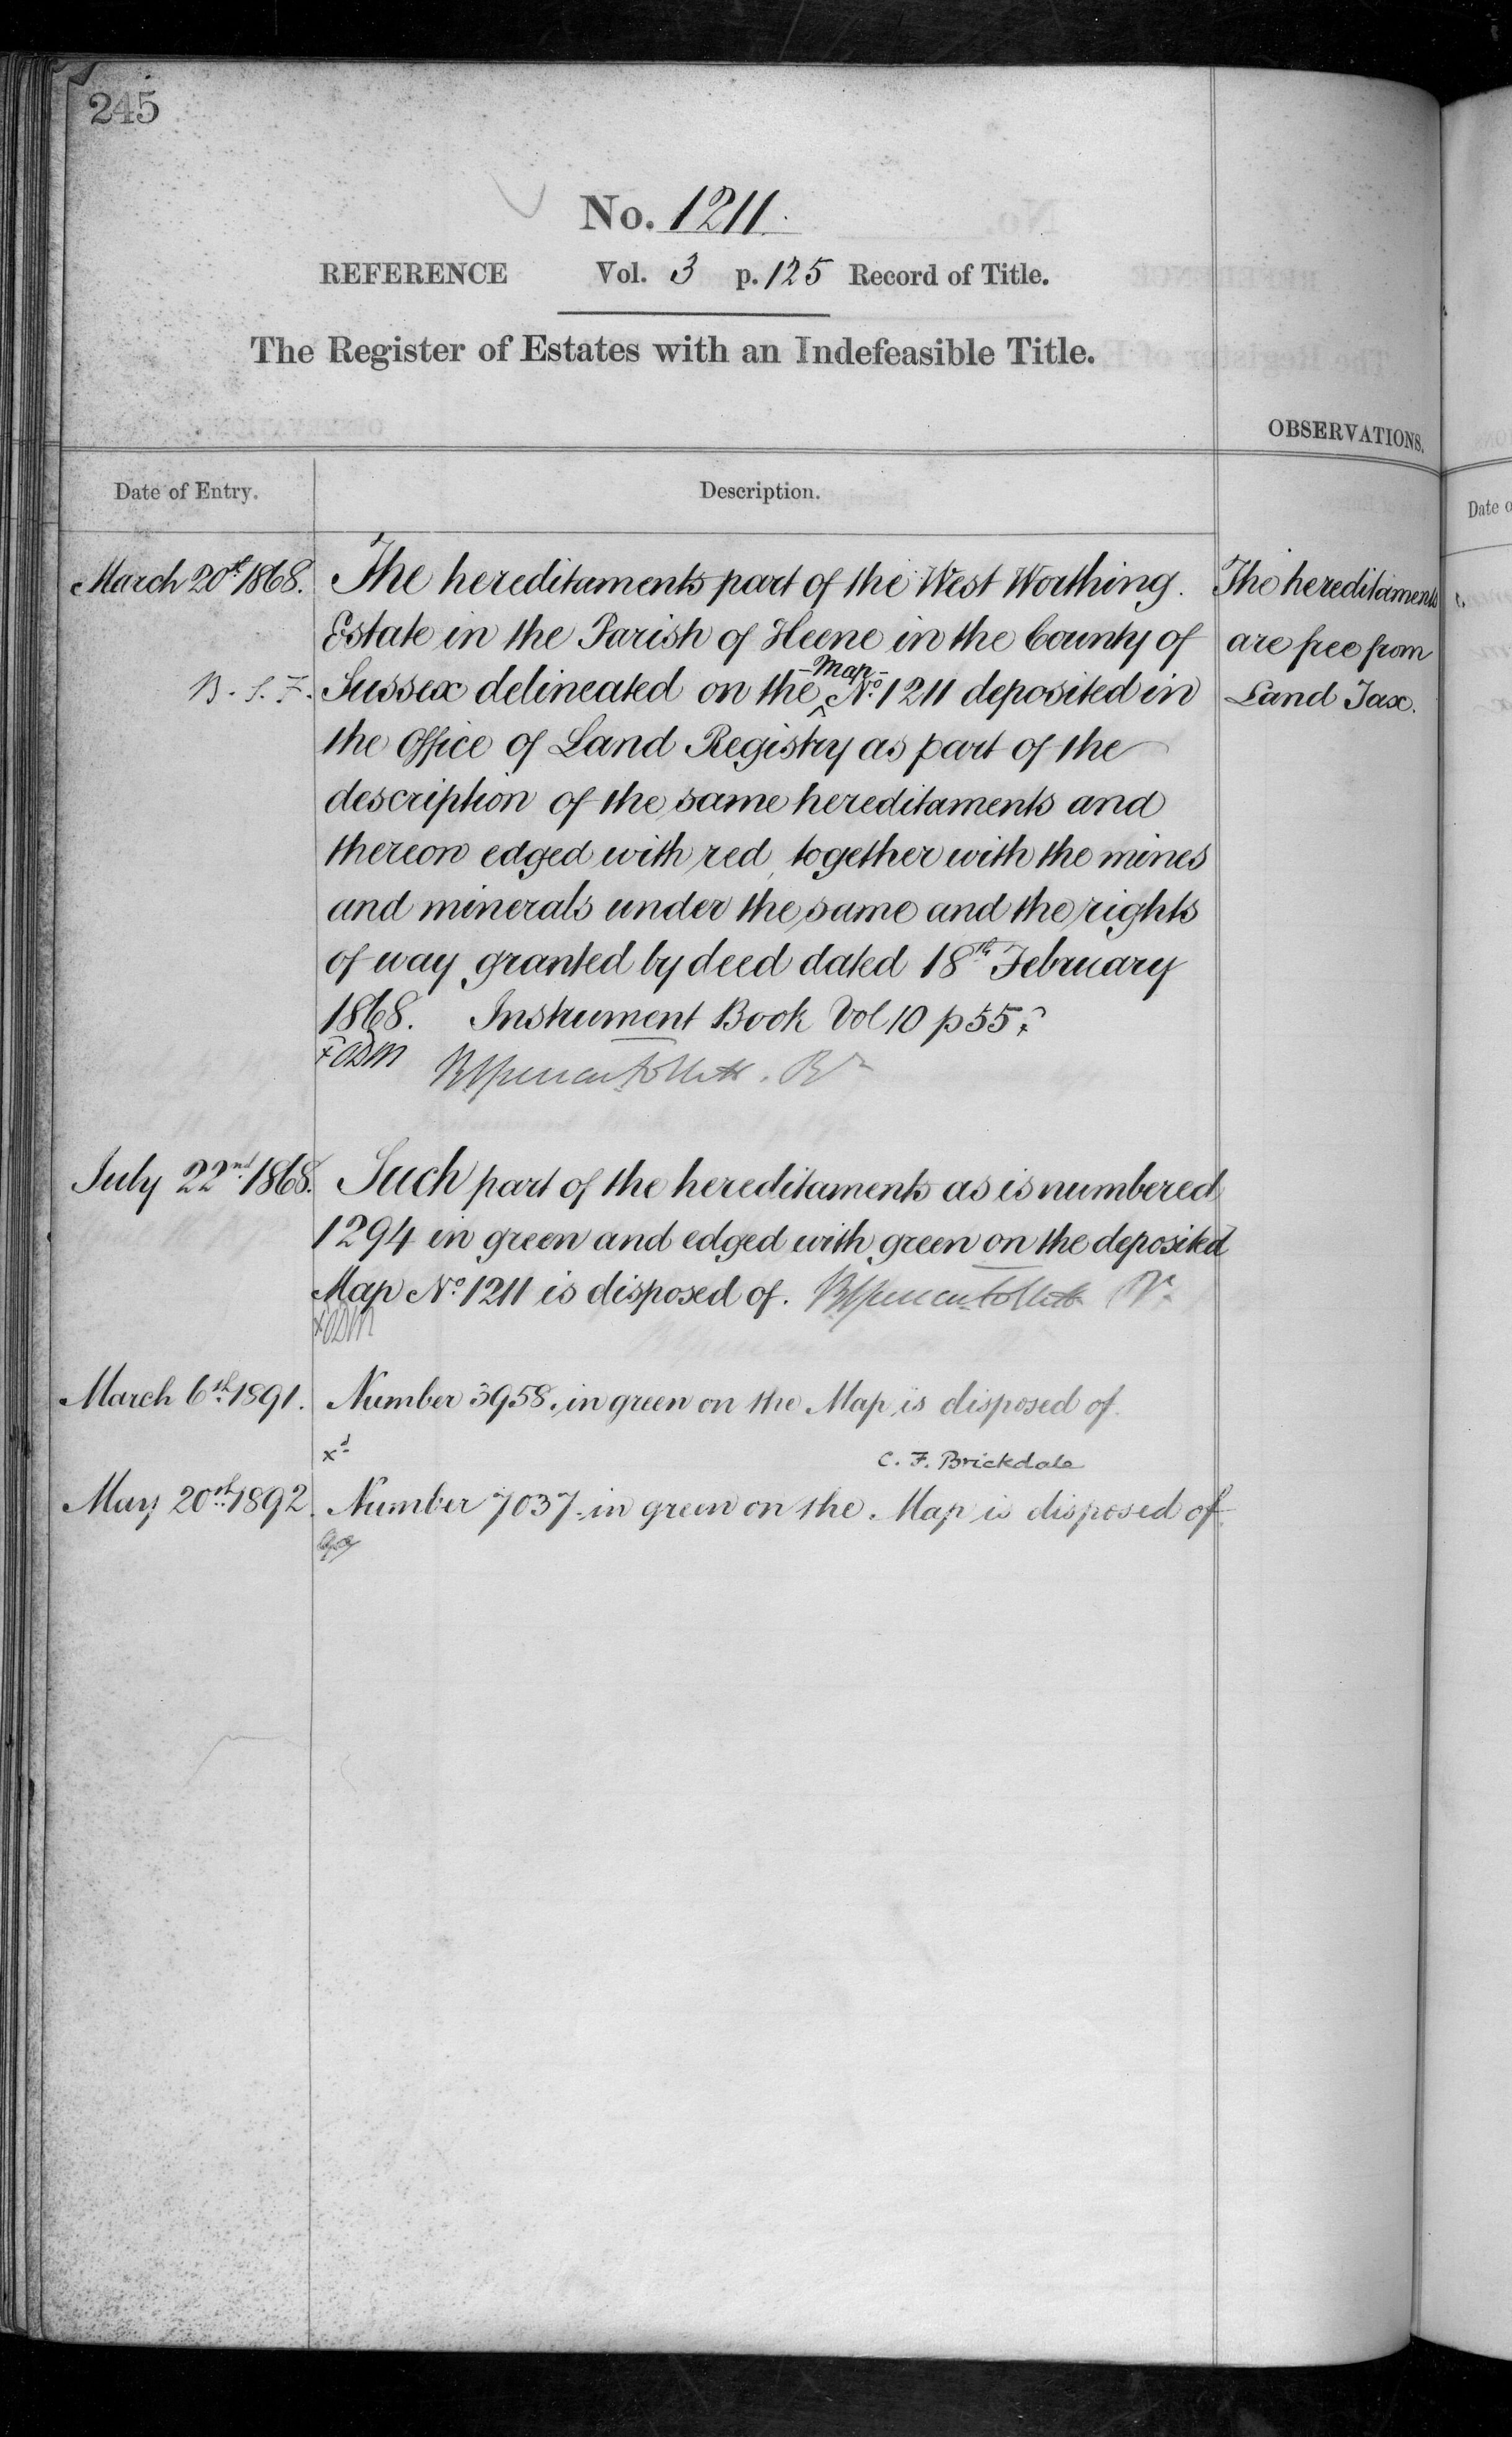 245
No. 1211.
REFERENCE Vol. 3 p. 125 Record of Title.
The Register of Estates with an Indefeasible Title.
OBSERVATIONS.
Date of Entry. Description.
March 20th 1868. The hereditaments part of the West Worthing.
Estate in the Parish of Heene in the County of
B. S. F. Sussex delineated on the Map No. 1211 deposited in
the Office of Land Registry as part of the
description of the same hereditaments and
thereon edged with red, together with the mines
and minerals under the same and the rights
of way granted by deed dated 18th February
1868. Instrument Book Vol 10 p 55.
The hereditaments
are free from
Land Tax.
July 22nd 1868. Such part of the hereditaments as is numbered
1294 in green and edged with green on the deposited
Map No. 1211 is disposed of.
March 6th 1891. Number 3958. in green on the Map is disposed of.
xd
C. F. Brickdale
May 20th 1892. Number 7037. in green on the Map is disposed of.
Date o